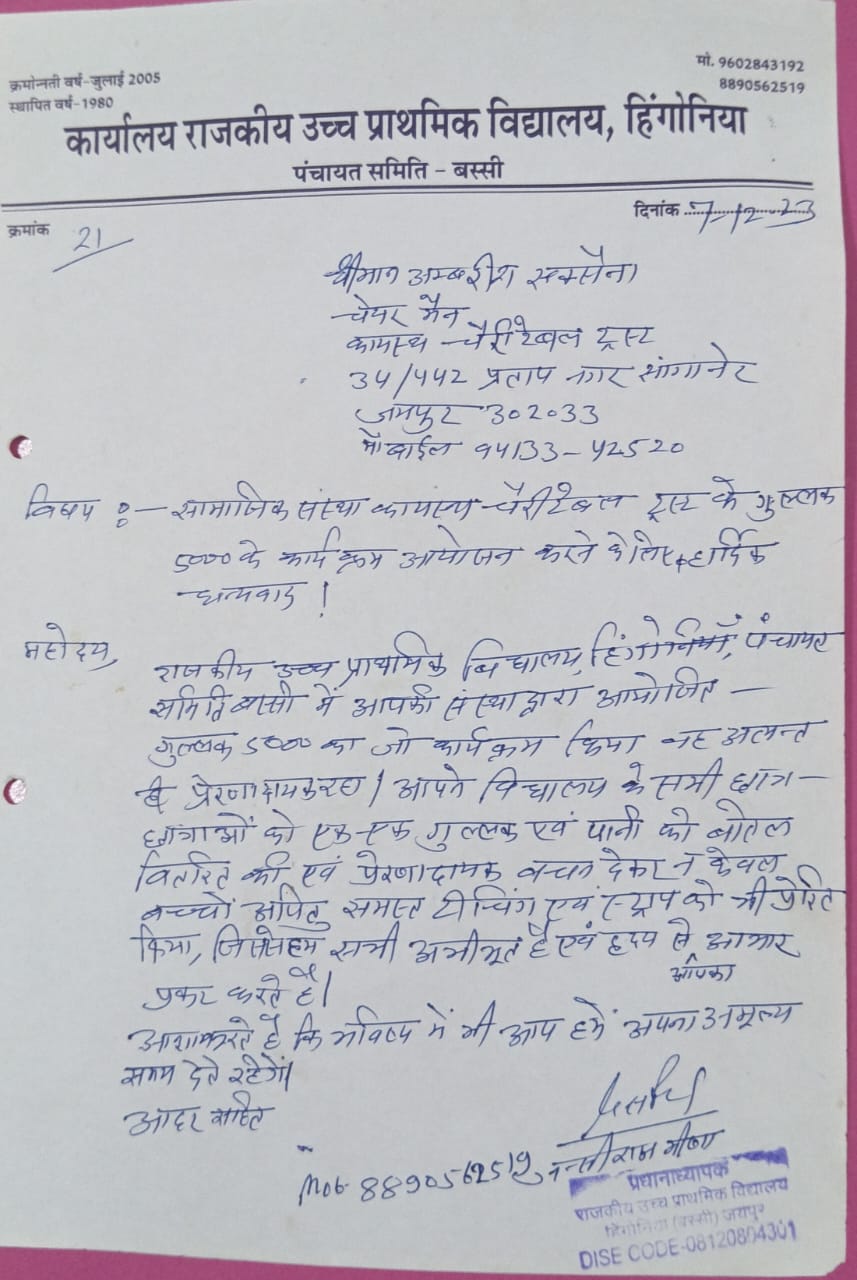 क्रमोन्नती वर्ष-जुलाई 2005
स्थापित वर्ष-1980
मो. 9602843192
8890562519
कार्यालय राजकीय उच्च प्राथमिक विद्यालय, हिंगोनिया
पंचायत समिति - बस्सी
दिनांक 7-12-23
क्रमांक 21
श्रीमान अम्बरीश सक्सैना
चेयर मैन
कायस्थ चैरीटेबल ट्रस्ट
34/442 प्रताप नगर सांगानेर
जयपुर 302033
मोबाईल 94133-42520
विषय :- सामाजिक संस्था कायस्थ चैरीटेबल ट्रस्ट के गुल्लक
5000 के कार्यक्रम आयोजन करने के लिए हार्दिक
धन्यवाद !
महोदय,
राजकीय उच्च प्राथमिक विद्यालय, हिंगोनियाँ, पंचायत
समिति बस्सी में आपकी संस्था द्वारा आयोजित -
गुल्लक 5000 का जो कार्यक्रम किया वह अत्यन्त
प्रेरणादायक रहा। आपने विद्यालय के सभी छात्र-
छात्राओं को एक-एक गुल्लक एवं पानी की बोतल
वितरित की एवं प्रेरणादायक वचन देकर न केवल
बच्चों अपितु समस्त टीचिंग एवं स्टाफ को भी प्रेरित
किया, जिससे हम सभी अभीभूत है एवं ह्रदय से आभार
आपका
प्रकट करते है।
आशा करते है कि भविष्य में भी आप हमें अपना अमूल्य
समय देते रहेगें।
आदर सहित
Mob- 8890562519
प्रधानाध्यापक
राजकीय उच्च प्राथमिक विद्यालय
हिंगोनिया (बस्सी) जयपुर
DISE CODE-08120804301